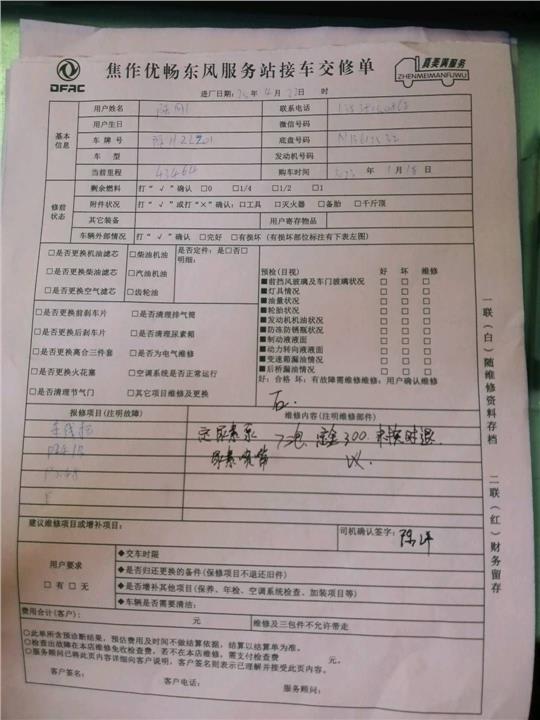 DFAC
焦作优畅东风服务站接车交修单
真美满服务
ZHENMEIMANFUWU
进厂日期: 年 4 月 23 日 时
基本信息
用户姓名 联系电话
用户生日 微信号码
车牌号 底盘号码
车型 发动机号码
当前里程 43464 购车时间 年 1 月 18 日
修前状态
剩余燃料 打“√”确认 □0 □1/4 □1/2 □1
附件状况 打“√”或打“×”确认:□工具 □灭火器 □备胎 □千斤顶
其它装备 用户寄存物品
车辆外部情况 打“√”确认 □完好 □有损坏 (有损坏部位标注有下表左图)
□是否更换机油滤芯 □柴油机油 是否定件:是□否□
明细:
□是否更换柴油滤芯 □汽油机油
□是否更换空气滤芯 □齿轮油
□是否更换前刹车片 □是否清理排气筒
□是否更换后刹车片 □是否清理尿素箱
□是否更换离合三件套 □是否为电气维修
□是否更换火花塞 □空调系统是否正常运行
□是否清理节气门 □其它项目维修及更换
预检(目视) 好 坏 维修
■前挡风玻璃及车门玻璃状况 □ □ □
■灯具情况 □ □ □
■油量状况 □ □ □
■轮胎状况 □ □ □
■发动机机油状况 □ □ □
■防冻防锈瓶状况 □ □ □
■制动液液面 □ □ □
■动力转向液液面 □ □ □
■变速箱漏油情况 □ □ □
■后桥漏油情况 □ □ □
好:合格 坏:有故障需维修维修:用户确认维修
报修项目(注明故障) 维修内容(注明维修部件)
尿素泵
300
尿素喷嘴
建议维修项目或增补项目:
司机确认签字:
用户要求
□有□无
◆交车时限
◆是否归还更换的备件(保修项目不退还旧件)
◆是否增补其他项目(保养、年检、空调系统检查、加装项目等)
◆车辆是否需要清洁:
费用合计(客户): 元 维修及三包件不允许带走
○此单所含预诊断结果,预估费用及时间不做结算依据,结算以结算单为准。
○检查出故障在本店维修免收检查费,若不在本店维修,需支付检查费 元。
○服务顾问已将此页内容详细向客户说明,客户签名则表示已理解并接受此页内容。
客户签名: 客户电话: 服务顾问:
一联(白)随维修资料存档
二联(红)财务留存